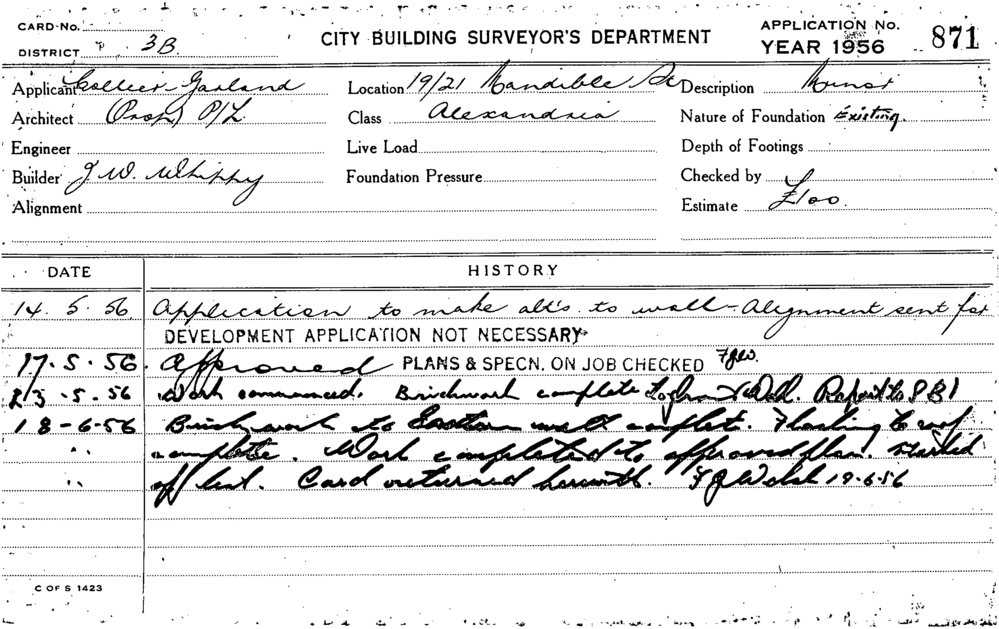 CARD No.
APPLICATION No. 871
DISTRICT 3B
CITY BUILDING SURVEYOR'S DEPARTMENT
YEAR 1956
Applicant Collier Garland
Location 19/21 Mandible St
Description Minor
Architect (Prop) P/L.
Class Alexandria
Nature of Foundation Existing.
Engineer
Live Load
Depth of Footings
Builder J. W. Whippy
Foundation Pressure
Checked by
Alignment
Estimate £100.
DATE HISTORY
14. 5. 56 Application to make alt's. to wall - Alignment sent for
DEVELOPMENT APPLICATION NOT NECESSARY
17. 5. 56. Approved PLANS & SPECN. ON JOB CHECKED FJW.
23. 5. 56 Work commenced. Brickwork complete Report to SBI
18-6-56 Brickwork to Eastern wall complete. Flashing to roof
" complete. Work completed to approved plan. Marked
" off list. Card returned herewith. FJ Welsh 19.6.56
C OF S 1423